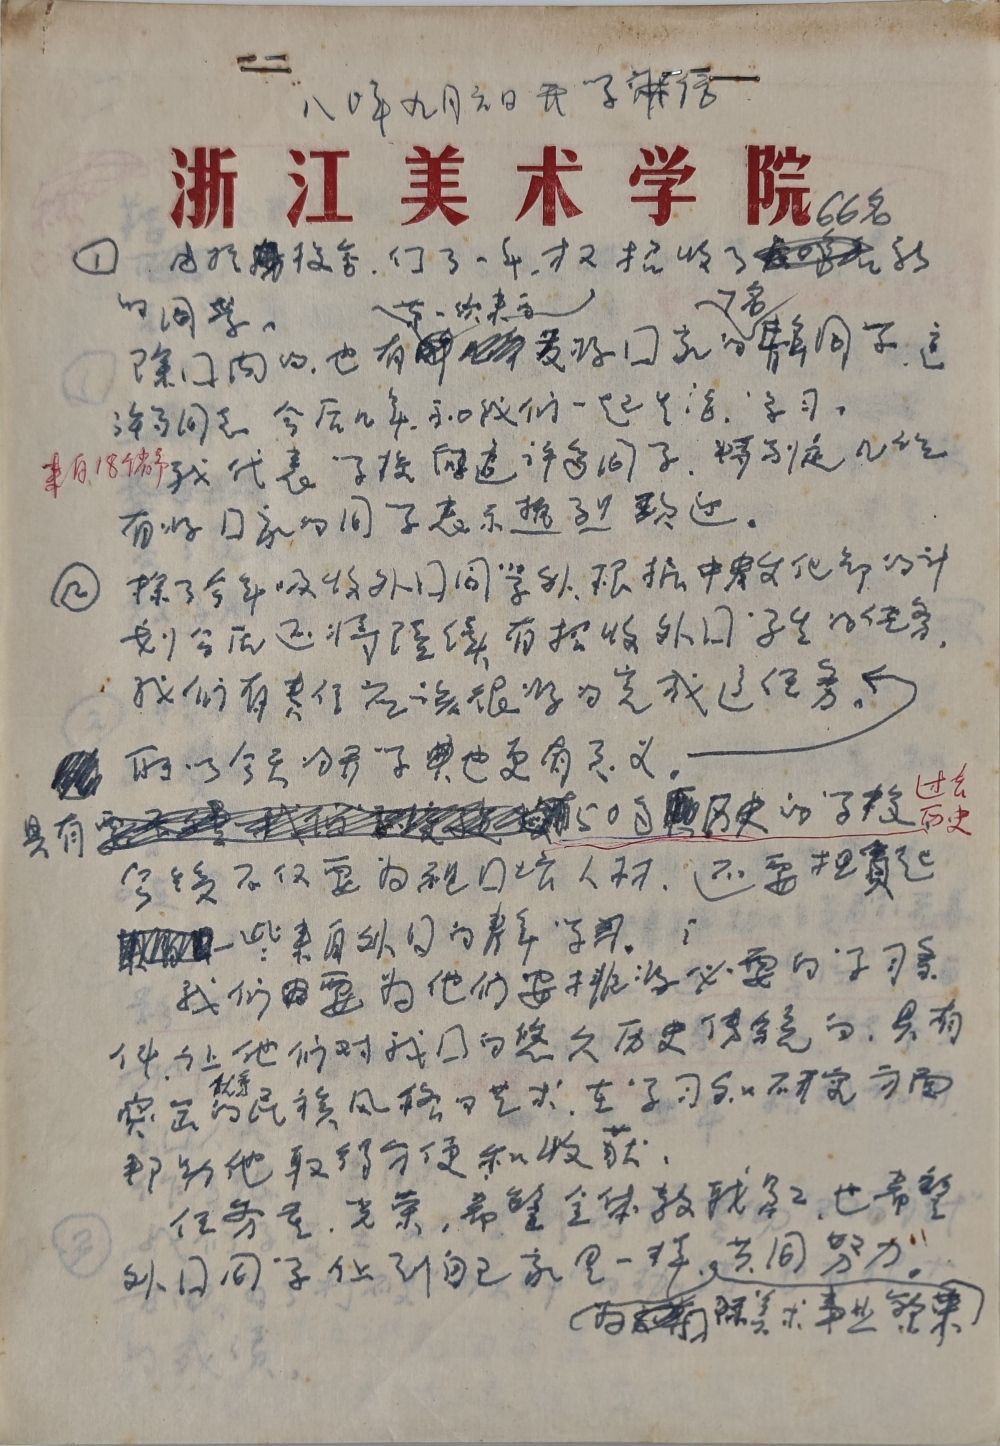 八〇年九月六日开学
浙江美术学院
66名
① 由于校舍,停了一年,才又招收了新
的同学。
第一次来自 7名
除国内的,也有友好国家的青年同学,这
许多同志今后几年,和我们一起生活,学习。
来自18个省市
我代表学校向这许多同学,特别是几位
有好国家的同学表示热烈欢迎。
② 除了今年吸收外国同学外,根据中央文化部的计
划今后还将陆续有招收外国学生的任务,
我们有责任应该很好的完成这任务。
所以今天的开学典也更有意义。
具有50多年历史的学校
过去历史
今后不仅要为祖国培人材,还要担负起
一些来自外国的青年学习。
我们要为他们安排好必要的学习条
件,让他们对我国的悠久历史传统的,具有
优秀
突出的民族风格的艺术,在学习和研究方面
帮助他取得方便和收获。
任务重,光荣,希望全体教职员工,也希望
外国同学像到自己家里一样,共同努力。
为 美术事业繁荣